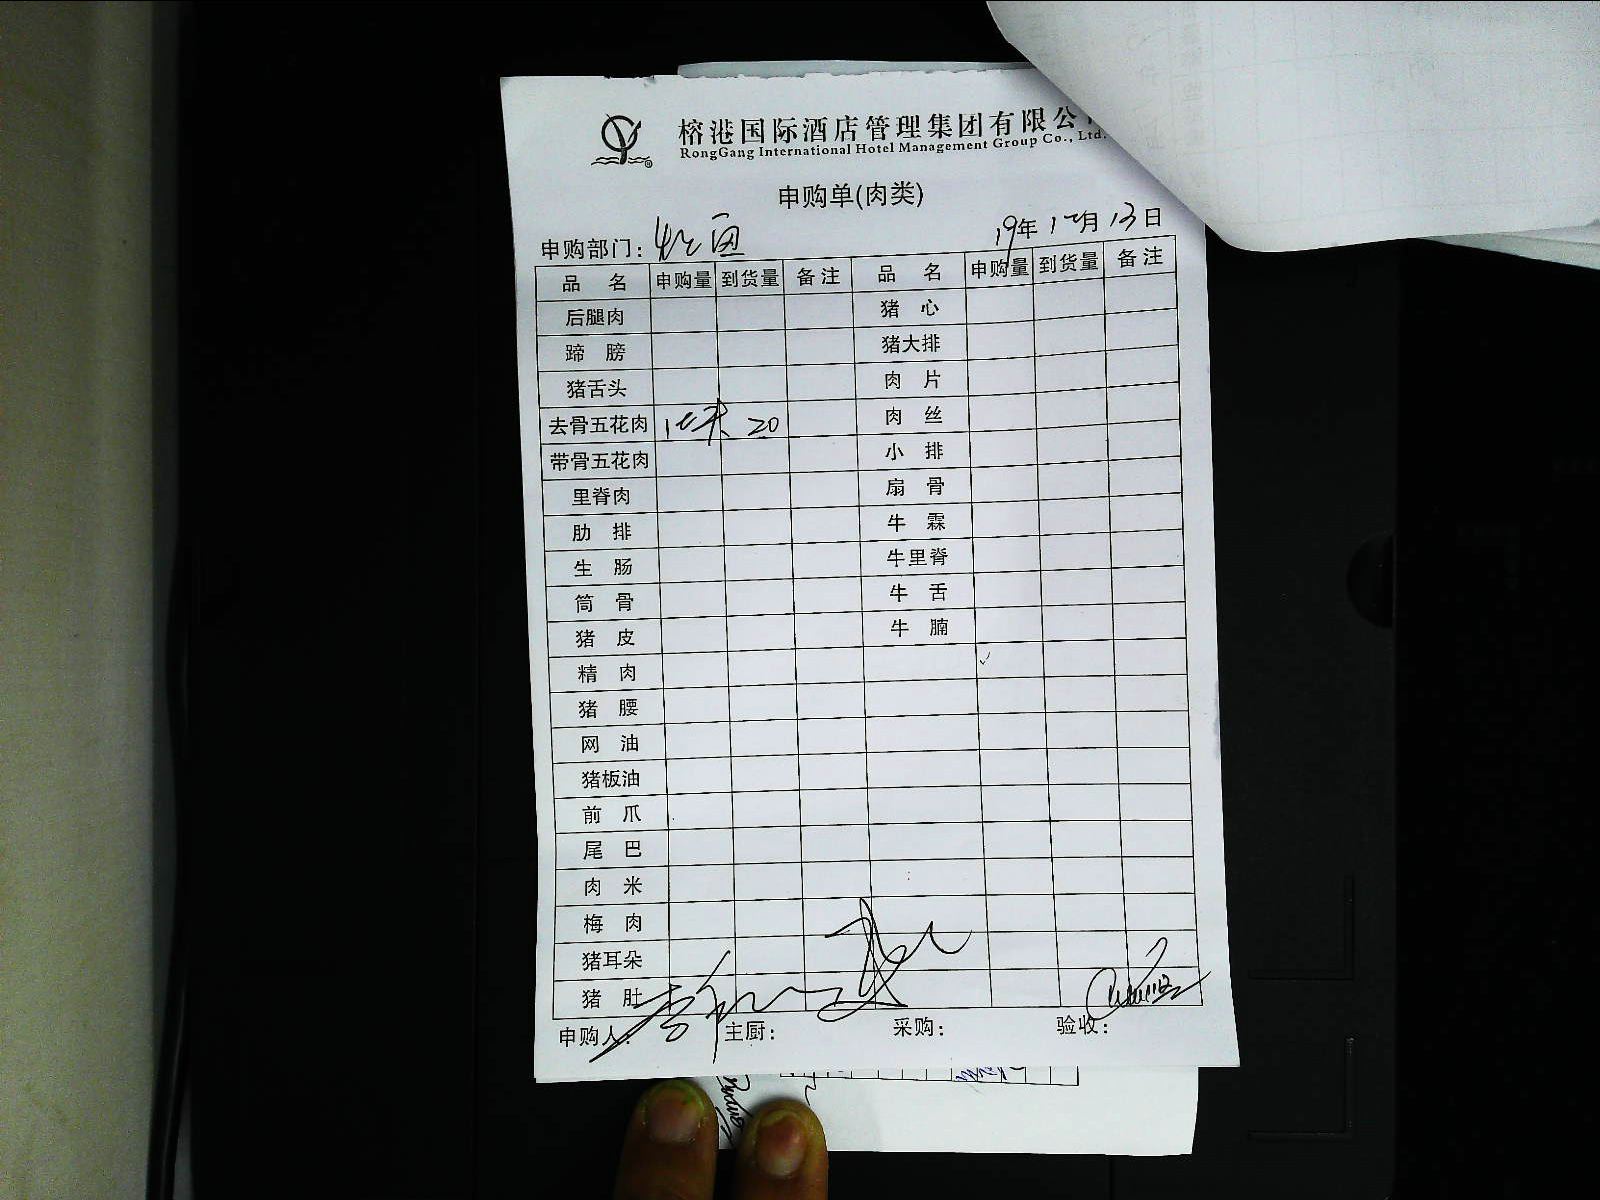 榕港国际酒店管理集团有限公
RongGang International Hotel Management Group Co., Ltd.
申购单(肉类)
申购部门： 19年12月13日
品 名 申购量 到货量 备注 品 名 申购量 到货量 备注
后腿肉 猪 心
蹄 膀 猪大排
猪舌头 肉 片
去骨五花肉 20 肉 丝
带骨五花肉 小 排
里脊肉 扇 骨
肋 排 牛 霖
生 肠 牛里脊
筒 骨 牛 舌
猪 皮 牛 腩
精 肉 ✓
猪 腰
网 油
猪板油
前 爪
尾 巴
肉 米
梅 肉
猪耳朵
猪 肚
申购人： 主厨： 采购： 验收：